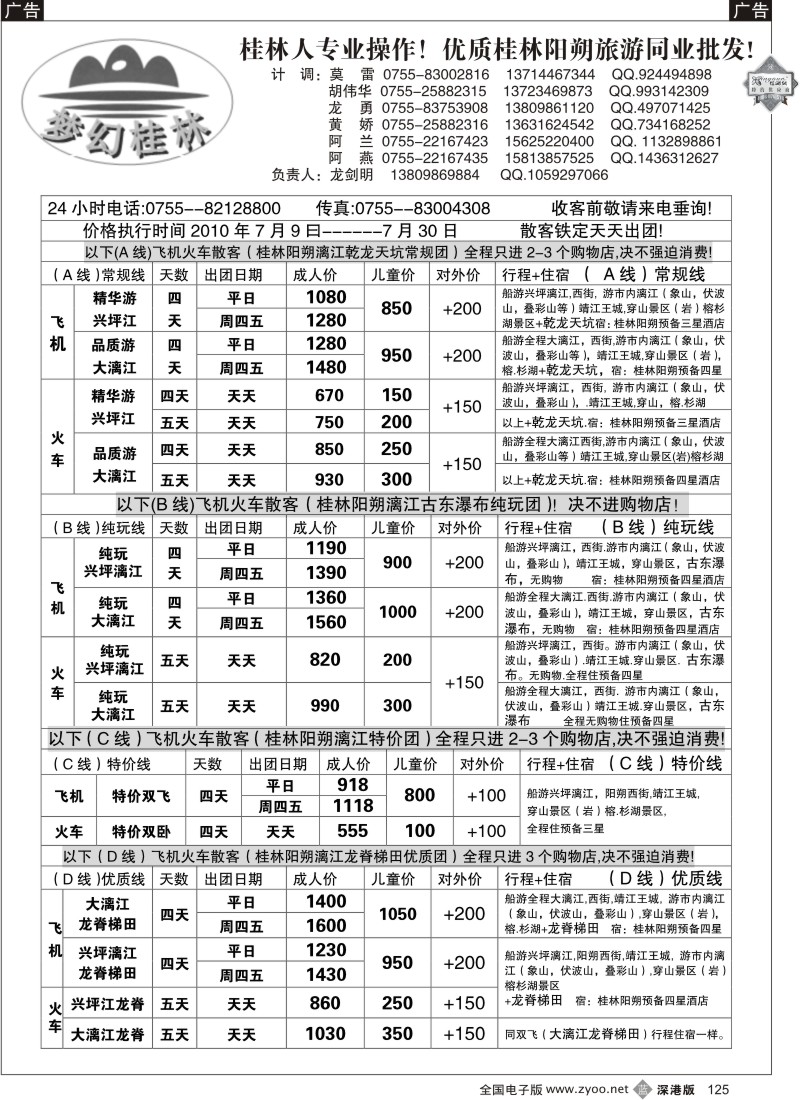 广告 广告
桂林人专业操作！优质桂林阳朔旅游同业批发！
梦幻桂林
计 调：莫 雷 0755-83002816 13714467344 QQ.924494898
胡伟华 0755-25882315 13723469873 QQ.993142309
龙 勇 0755-83753908 13809861120 QQ.497071425
黄 娇 0755-25882316 13631624542 QQ.734168252
阿 兰 0755-22167423 15625220400 QQ. 1132898861
阿 燕 0755-22167435 15813857525 QQ.1436312627
负责人：龙剑明 13809869884 QQ.1059297066
24 小时电话:0755--82128800 传真:0755--83004308 收客前敬请来电垂询!
价格执行时间 2010 年 7 月 9 曰------7 月 30 日 散客铁定天天出团!
以下(A 线)飞机火车散客（桂林阳朔漓江乾龙天坑常规团）全程只进 2-3 个购物店,决不强迫消费!
（A 线)常规线 天数 出团日期 成人价 儿童价 对外价 行程+住宿 （ A 线）常规线
飞机 精华游 兴坪江 四天 平日 1080 850 +200 船游兴坪漓江,西街, 游市内漓江（象山，伏
周四五 1280 波山，叠彩山等）靖江王城,穿山景区（岩）榕杉
湖景区+乾龙天坑宿：桂林阳朔预备三星酒店
品质游 大漓江 四天 平日 1280 950 +200 船游全程大漓江，西街,游市内漓江（象山，伏
周四五 1480 波山，叠彩山等)，靖江王城,穿山景区（岩)，
榕.杉湖+乾龙天坑，宿：桂林阳朔预备四星
火车 精华游 兴坪江 四天 天天 670 150 +150 船游兴坪漓江，西街, 游市内漓江（象山，伏
波山，叠彩山)，.靖江王城,穿山，榕.杉湖
五天 天天 750 200 以上+乾龙天坑.宿：桂林阳朔预备三星酒店
品质游 大漓江 四天 天天 850 250 +150 船游全程大漓江西街,游市内漓江（象山，伏波
山，叠彩山等）靖江王城,穿山景区(岩)榕杉湖
五天 天天 930 300 以上+乾龙天坑.宿：桂林阳朔预备四星酒店
以下(B 线)飞机火车散客（桂林阳朔漓江古东瀑布纯玩团)！决不进购物店！
（B 线)纯玩线 天数 出团日期 成人价 儿童价 对外价 行程+住宿 （B 线）纯玩线
飞机 纯玩 兴坪漓江 四天 平日 1190 900 +200 船游兴坪漓江，西街.游市内漓江（象山，伏波
周四五 1390 山，叠彩山)，靖江王城，穿山景区，古东瀑
布，无购物 宿：桂林阳朔预备四星酒店
纯玩 大漓江 四天 平日 1360 1000 +200 船游全程大漓江.西街.游市内漓江（象山，伏
周四五 1560 波山，叠彩山)，靖江王城，穿山景区，古东
瀑布，无购物 宿：桂林阳朔预备四星酒店
火车 纯玩 兴坪漓江 五天 天天 820 200 +150 船游兴坪漓江，西街。游市内漓江（象山，伏
波山，叠彩山）.靖江王城.穿山景区. 古东瀑
布。无购物.全程住预备四星
纯玩 大漓江 五天 天天 990 300 船游全程大漓江，西街. 游市内漓江（象山，
伏波山，叠彩山）靖江王城.穿山景区，古东
瀑布 全程无购物住预备四星
以下（C 线）飞机火车散客（桂林阳朔漓江特价团）全程只进 2-3 个购物店,决不强迫消费!
（C 线）特价线 天数 出团日期 成人价 儿童价 对外价 行程+住宿 （C 线）特价线
飞机 特价双飞 四天 平日 918 800 +100 船游兴坪漓江，阳朔西街,靖江王城,
周四五 1118 穿山景区（岩）榕.杉湖景区,
火车 特价双卧 四天 天天 555 100 +100 全程住预备三星
以下（D 线）飞机火车散客（桂林阳朔漓江龙脊梯田优质团）全程只进 3 个购物店,决不强迫消费!
（D 线)优质线 天数 出团日期 成人价 儿童价 对外价 行程+住宿 （D 线）优质线
飞机 大漓江 龙脊梯田 四天 平日 1400 1050 +200 船游全程大漓江,西街,靖江王城, 游市内漓江
周四五 1600 （象山，伏波山，叠彩山）,穿山景区（岩)，
榕.杉湖+龙脊梯田 宿：桂林阳朔预备四星
兴坪漓江 龙脊梯田 四天 平日 1230 950 +200 船游兴坪漓江,阳朔西街,靖江王城, 游市内漓
周四五 1430 江（象山，伏波山，叠彩山）,穿山景区（岩）
榕杉湖景区
火车 兴坪江龙脊 五天 天天 860 250 +150 +龙脊梯田 宿：桂林阳朔预备四星酒店
大漓江龙脊 五天 天天 1030 350 +150 同双飞（大漓江龙脊梯田）行程住宿一样。
全国电子版 www.zyoo.net 蓝 深港版 125